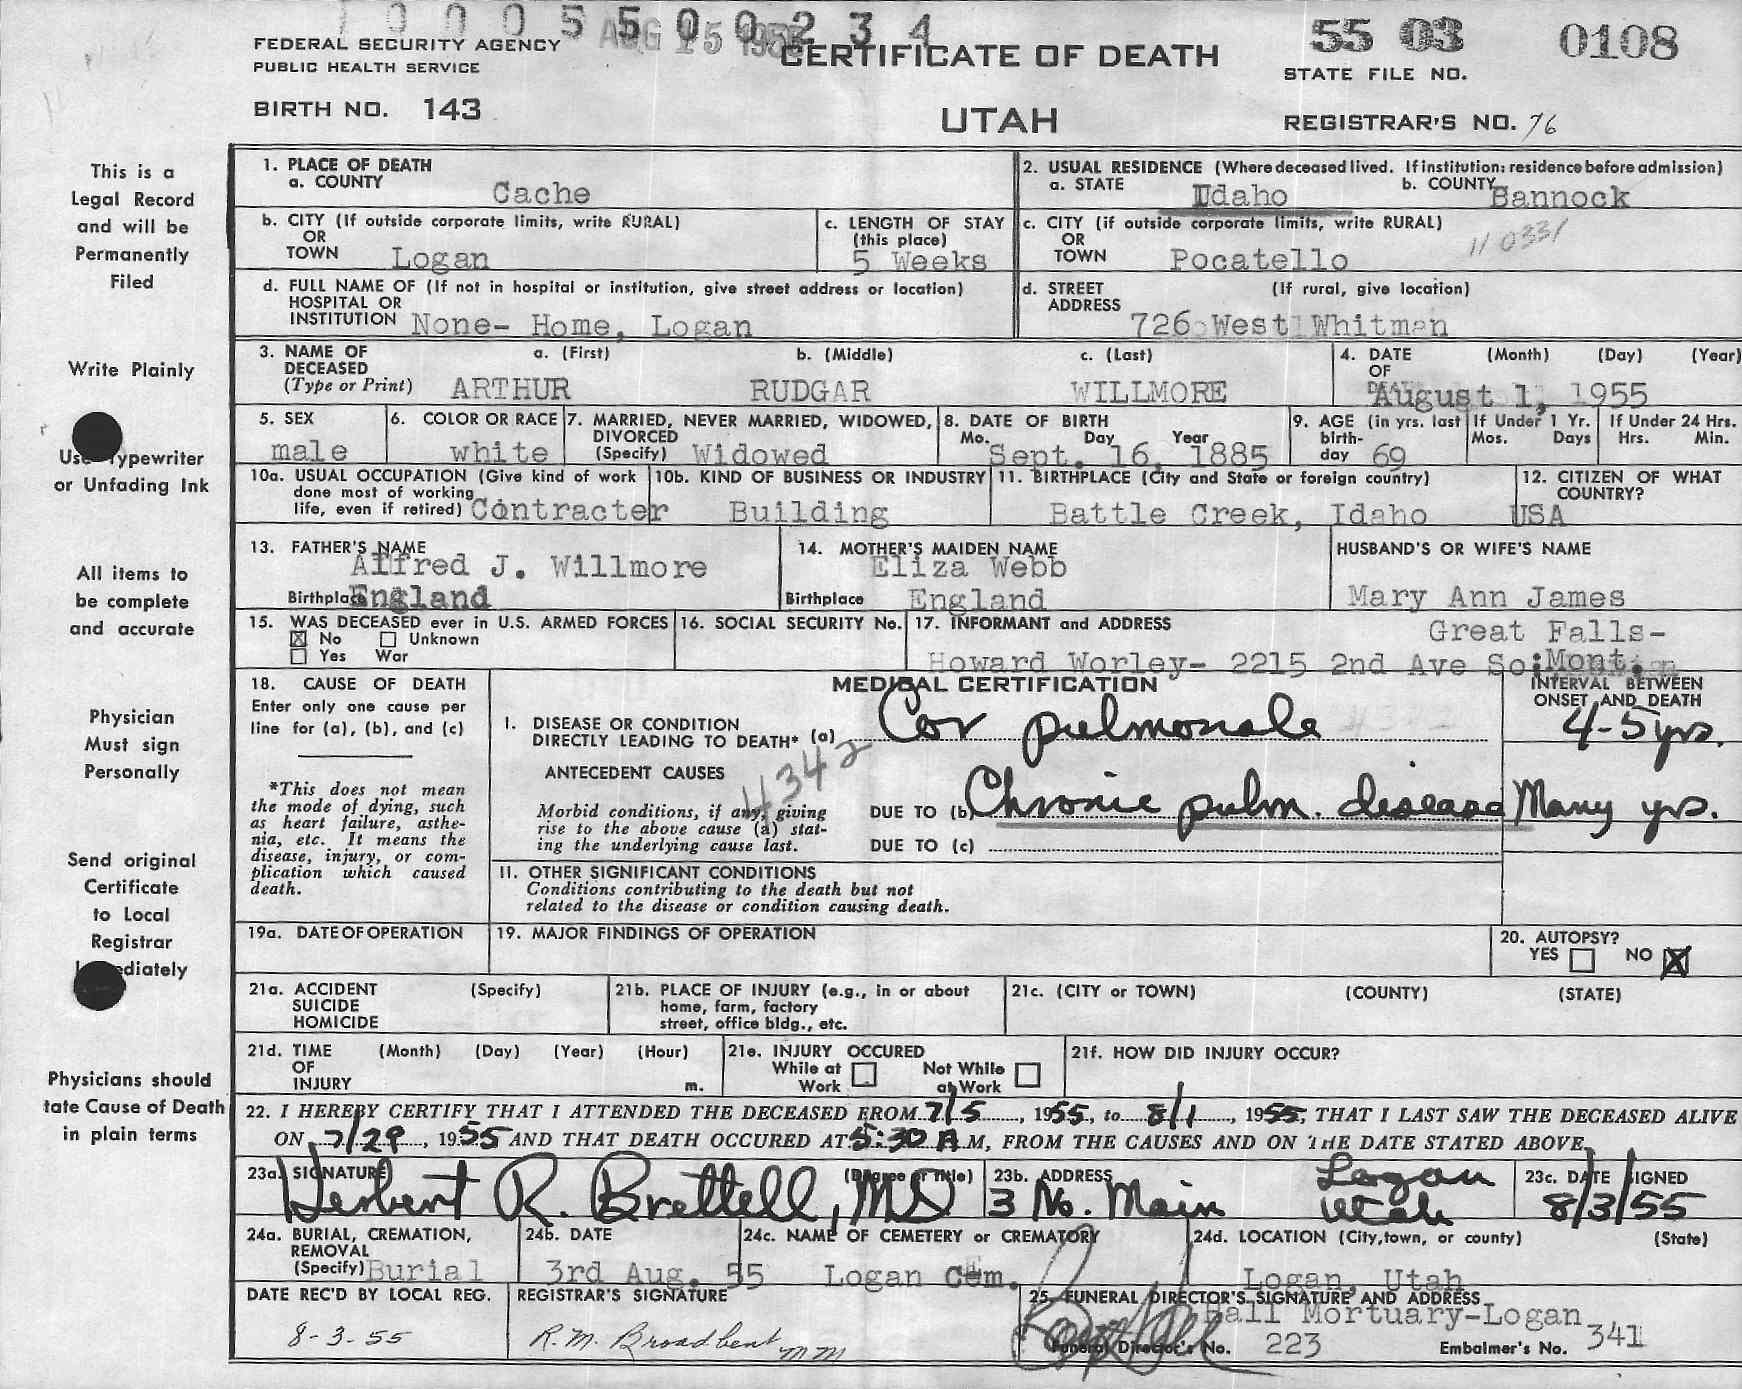 1 0 0 0 5 5 0 0 2 3 4
AUG 15 1955
FEDERAL SECURITY AGENCY
PUBLIC HEALTH SERVICE
BIRTH NO. 143
CERTIFICATE OF DEATH
UTAH
55 03 0108
STATE FILE NO.
REGISTRAR'S NO. 76
This is a
Legal Record
and will be
Permanently
Filed
Write Plainly
Use Typewriter
or Unfading Ink
All items to
be complete
and accurate
Physician
Must sign
Personally
Send original
Certificate
to Local
Registrar
Immediately
Physicians should
tate Cause of Death
in plain terms
1. PLACE OF DEATH
a. COUNTY Cache
2. USUAL RESIDENCE (Where deceased lived. If institution: residence before admission)
a. STATE Idaho b. COUNTY Bannock
b. CITY (If outside corporate limits, write RURAL)
OR
TOWN Logan
c. LENGTH OF STAY
(this place)
5 Weeks
c. CITY (if outside corporate limits, write RURAL)
OR
TOWN Pocatello
110331
d. FULL NAME OF (If not in hospital or institution, give street address or location)
HOSPITAL OR
INSTITUTION None- Home, Logan
d. STREET (If rural, give location)
ADDRESS
726 West Whitman
3. NAME OF a. (First) b. (Middle) c. (Last)
DECEASED
(Type or Print) ARTHUR RUDGAR WILLMORE
4. DATE (Month) (Day) (Year)
OF
DEATH August 1, 1955
5. SEX
male
6. COLOR OR RACE
white
7. MARRIED, NEVER MARRIED, WIDOWED,
DIVORCED
(Specify) Widowed
8. DATE OF BIRTH
Mo. Day Year
Sept. 16, 1885
9. AGE (in yrs. last
birth-
day 69
If Under 1 Yr.
Mos. Days
If Under 24 Hrs.
Hrs. Min.
10a. USUAL OCCUPATION (Give kind of work
done most of working
life, even if retired) Contracter
10b. KIND OF BUSINESS OR INDUSTRY
Building
11. BIRTHPLACE (City and State or foreign country)
Battle Creek, Idaho
12. CITIZEN OF WHAT
COUNTRY?
USA
13. FATHER'S NAME
Alfred J. Willmore
Birthplace England
14. MOTHER'S MAIDEN NAME
Eliza Webb
Birthplace England
HUSBAND'S OR WIFE'S NAME
Mary Ann James
15. WAS DECEASED ever in U.S. ARMED FORCES
☒ No ☐ Unknown
☐ Yes War
16. SOCIAL SECURITY No.
17. INFORMANT and ADDRESS Great Falls-
Howard Worley- 2215 2nd Ave So; Mont.
18. CAUSE OF DEATH
Enter only one cause per
line for (a), (b), and (c)
*This does not mean
the mode of dying, such
as heart failure, asthe-
nia, etc. It means the
disease, injury, or com-
plication which caused
death.
MEDICAL CERTIFICATION
INTERVAL BETWEEN
ONSET AND DEATH
I. DISEASE OR CONDITION
DIRECTLY LEADING TO DEATH* (a) Cor pulmonale 4-5 yrs.
4342
ANTECEDENT CAUSES
Morbid conditions, if any, giving
rise to the above cause (a) stat-
ing the underlying cause last.
DUE TO (b) Chronic pulm. disease Many yrs.
DUE TO (c)
II. OTHER SIGNIFICANT CONDITIONS
Conditions contributing to the death but not
related to the disease or condition causing death.
19a. DATE OF OPERATION
19. MAJOR FINDINGS OF OPERATION
20. AUTOPSY?
YES ☐ NO ☒
21a. ACCIDENT (Specify)
SUICIDE
HOMICIDE
21b. PLACE OF INJURY (e.g., in or about
home, farm, factory
street, office bldg., etc.
21c. (CITY or TOWN) (COUNTY) (STATE)
21d. TIME (Month) (Day) (Year) (Hour)
OF
INJURY m.
21e. INJURY OCCURED
While at Work ☐ Not While at Work ☐
21f. HOW DID INJURY OCCUR?
22. I HEREBY CERTIFY THAT I ATTENDED THE DECEASED FROM 7/5, 1955, to 8/1, 1955, THAT I LAST SAW THE DECEASED ALIVE
ON 7/29, 1955 AND THAT DEATH OCCURED AT 5:30 A.M, FROM THE CAUSES AND ON THE DATE STATED ABOVE.
23a. SIGNATURE (Degree or Title)
Herbert R. Brettell, MD
23b. ADDRESS
3 No. Main Logan Utah
23c. DATE SIGNED
8/3/55
24a. BURIAL, CREMATION,
REMOVAL
(Specify) Burial
24b. DATE
3rd Aug. 55
24c. NAME OF CEMETERY or CREMATORY
Logan Cem.
24d. LOCATION (City, town, or county) (State)
Logan, Utah
DATE REC'D BY LOCAL REG.
8-3-55
REGISTRAR'S SIGNATURE
R.M. Broadbent
mm
25. FUNERAL DIRECTOR'S SIGNATURE AND ADDRESS
Hall Mortuary-Logan
Funeral Director's No. 223 Embalmer's No. 341